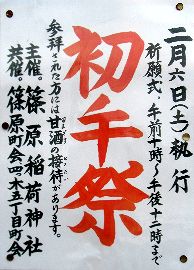 二月六日(土)執行
祈願式、午前十時〜午後十二時まで
初午祭
参拝された方には甘酒の接待があります。
主催、篠原稲荷神社
共催。篠原町会・四木五丁目町会